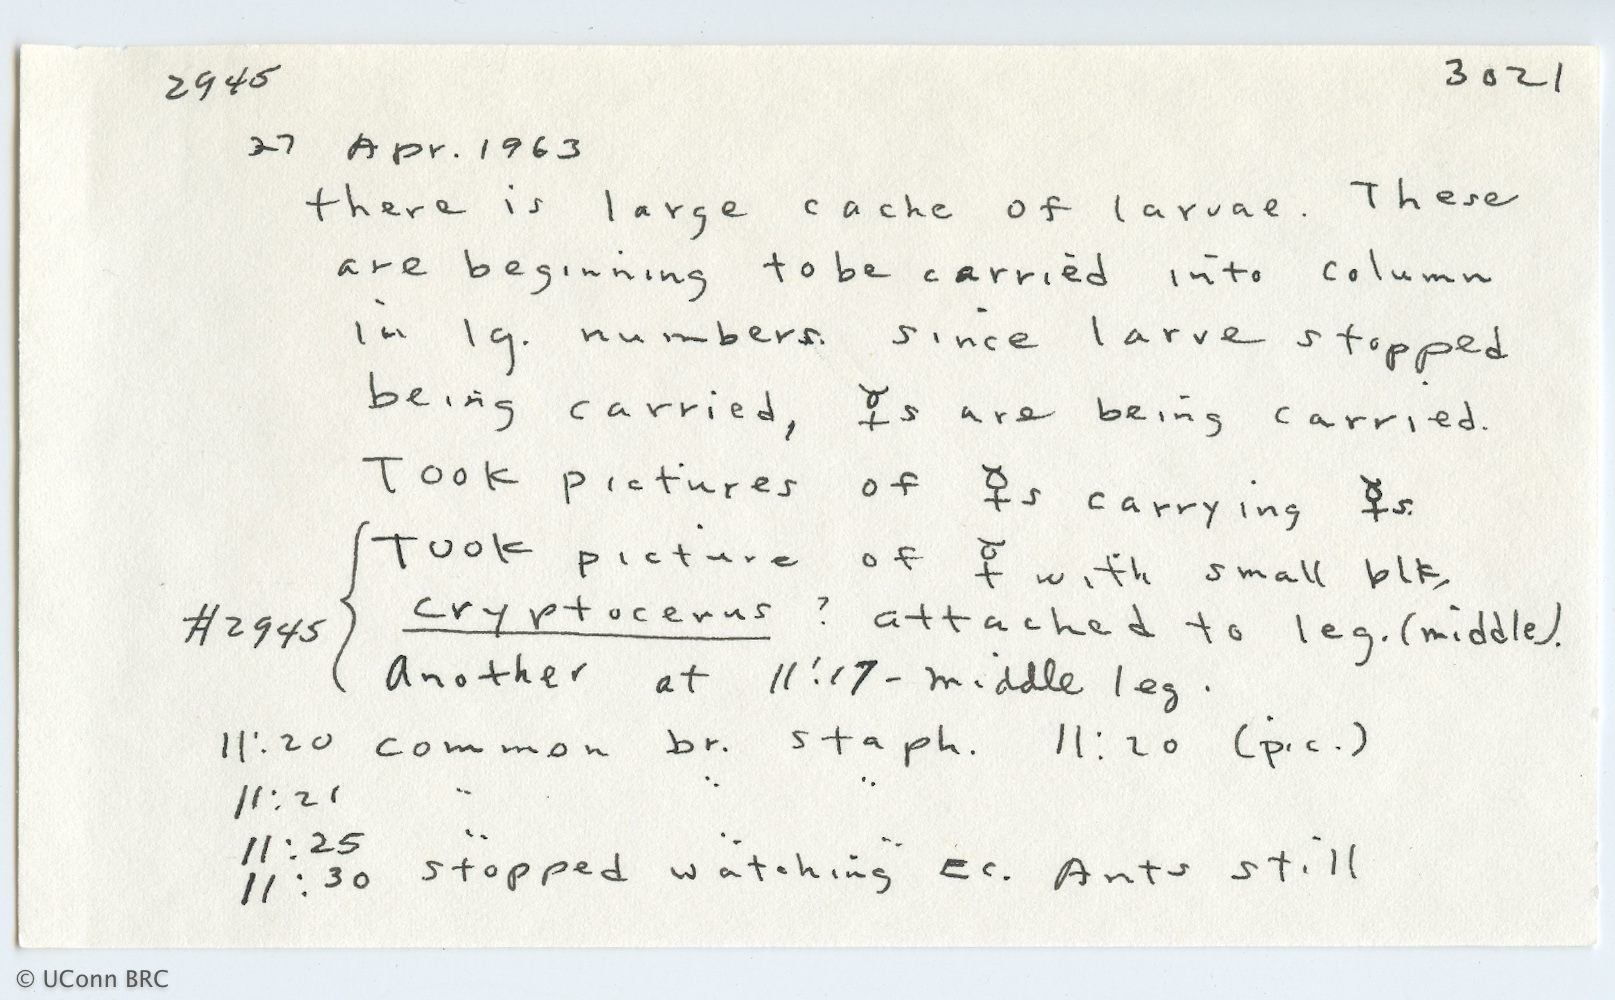 2945 3021
27 Apr. 1963
there is large cache of larvae. These
are beginning to be carried into column
in lg. numbers. since larve stopped
being carried, ☿s are being carried.
Took pictures of ☿s carrying ☿s.
Took picture of ☿ with small blk,
#2945 cryptocerus ? attached to leg. (middle).
Another at 11:17 - middle leg.
11:20 common br. staph. 11:20 (pic.)
11:21 " " "
11:25 " " "
11:30 stopped watching Ec. Ants still
© UConn BRC